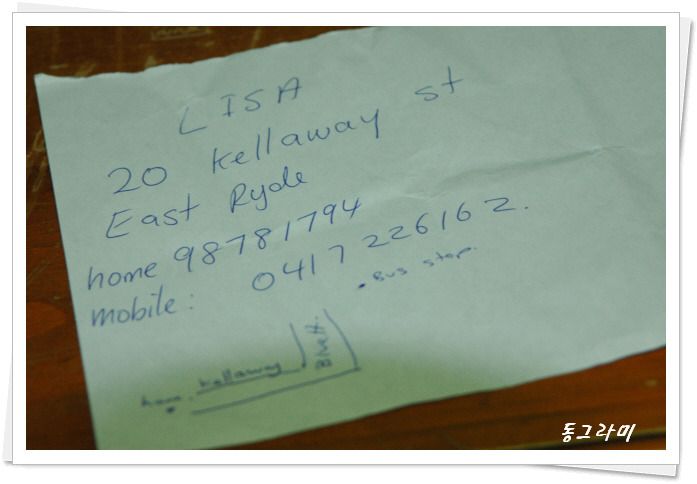 LISA
20 Kellaway st
East Ryde
home 98781794
mobile: 0417 226162.
. Bus stop.
Blvett.
home. Kellaway
동그라미